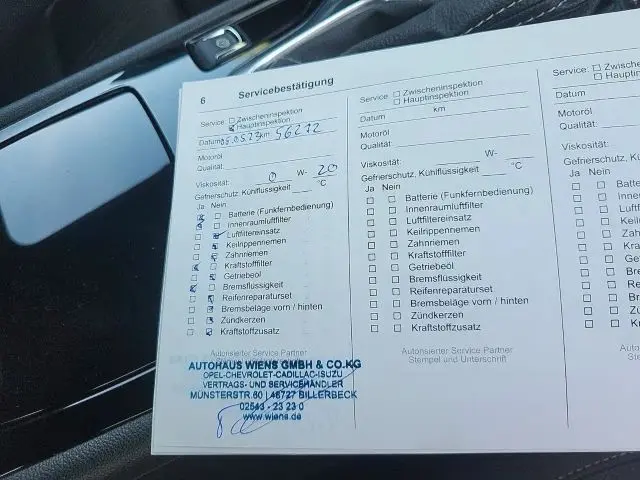 6 Servicebestätigung
Service ☐ Zwischeninspektion
☒ Hauptinspektion
Datum 05.23 km 56272
Motoröl
Qualität:
Viskosität: 0 W- 20
Gefrierschutz, Kühlflüssigkeit °C
Ja Nein
Batterie (Funkfernbedienung)
Innenraumluftfilter
Luftfiltereinsatz
Keilrippenriemen
Zahnriemen
Kraftstofffilter
Getriebeöl
Bremsflüssigkeit
Reifenreparaturset
Bremsbeläge vorn / hinten
Zündkerzen
Kraftstoffzusatz
Autorisierter Service Partner
AUTOHAUS WIENS GMBH & CO.KG
OPEL-CHEVROLET-CADILLAC-ISUZU
VERTRAGS- UND SERVICEHÄNDLER
MÜNSTERSTR.60 | 48727 BILLERBECK
02543 - 23 23 0
www.wiens.de
Service ☐ Zwischeninspektion
☐ Hauptinspektion
Datum km
Motoröl
Qualität:
Viskosität: W-
Gefrierschutz, Kühlflüssigkeit °C
Ja Nein
Batterie (Funkfernbedienung)
Innenraumluftfilter
Luftfiltereinsatz
Keilrippenriemen
Zahnriemen
Kraftstofffilter
Getriebeöl
Bremsflüssigkeit
Reifenreparaturset
Bremsbeläge vorn / hinten
Zündkerzen
Kraftstoffzusatz
Autorisierter Service Partner
Stempel und Unterschrift
Service ☐ Zwischeninspek
☐ Hauptinspektion
Datum
Motoröl
Qualität:
Viskosität:
Gefrierschutz, Kühlflüs
Ja Nein
Batterie
Innenra
Luftfi
Keilr
Zah
Kra
Get
Bre
Re
Br
Zü
Kr